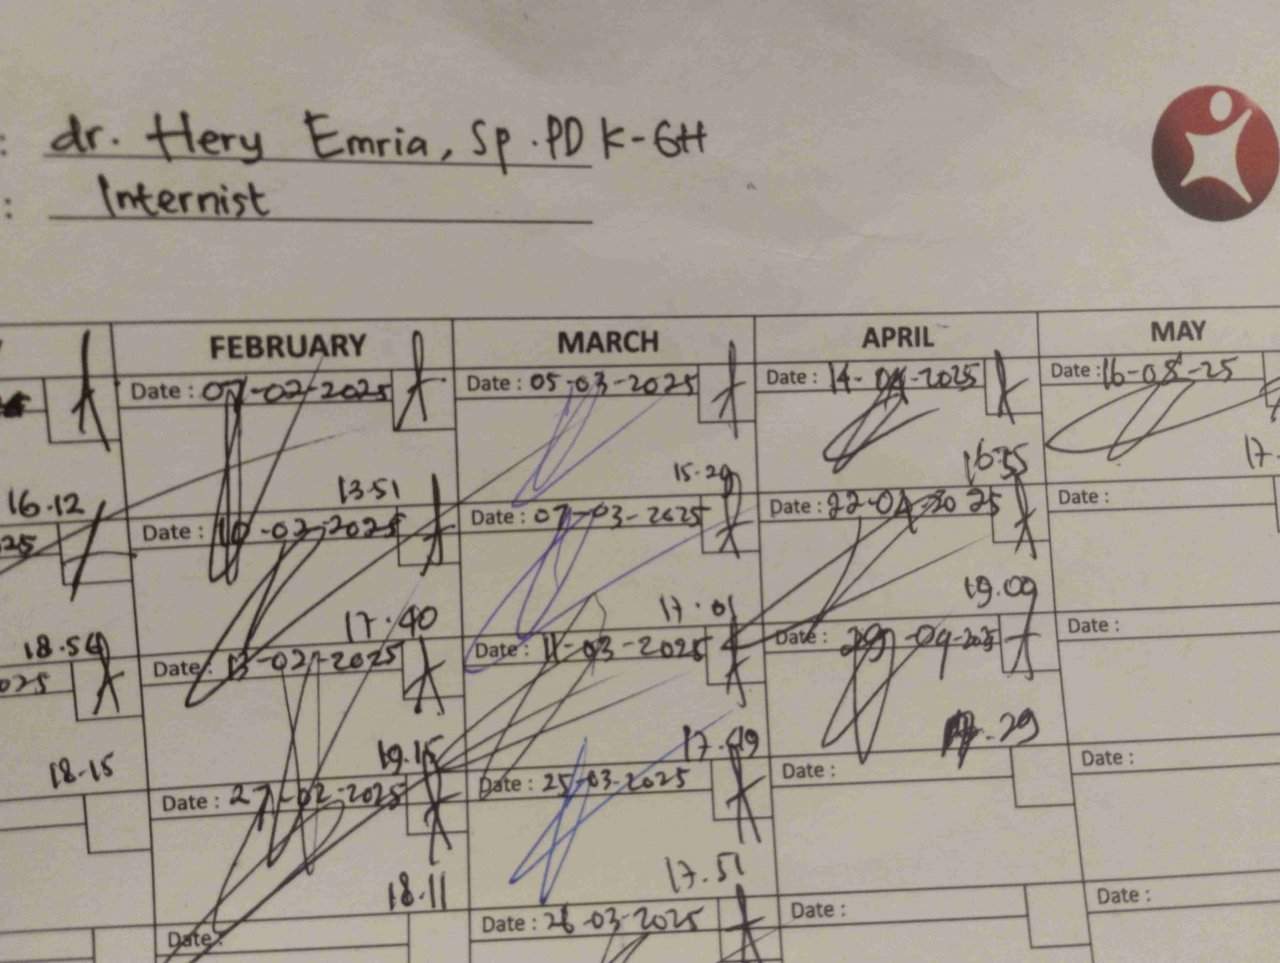 : dr. Hery Emria, Sp.PD K-GH
: Internist
FEBRUARY MARCH APRIL MAY
Date : 07-02-2025 Date : 05-03-2025 Date : 14-04-2025 Date :
16.12 13.51 15.29 16.55 17.
25 Date : 10-02-2025 Date : 07-03-2025 Date : 22-04-2025 Date :
18.54 17.40 17.01 19.09
025 Date : 13-02-2025 Date : 11-03-2025 Date : 29-04-2025 Date :
18.15 19.15 17.49 .29
Date : 27-02-2025 Date : 25-03-2025 Date : Date :
18.11 17.51
Date : Date : 26-03-2025 Date : Date :